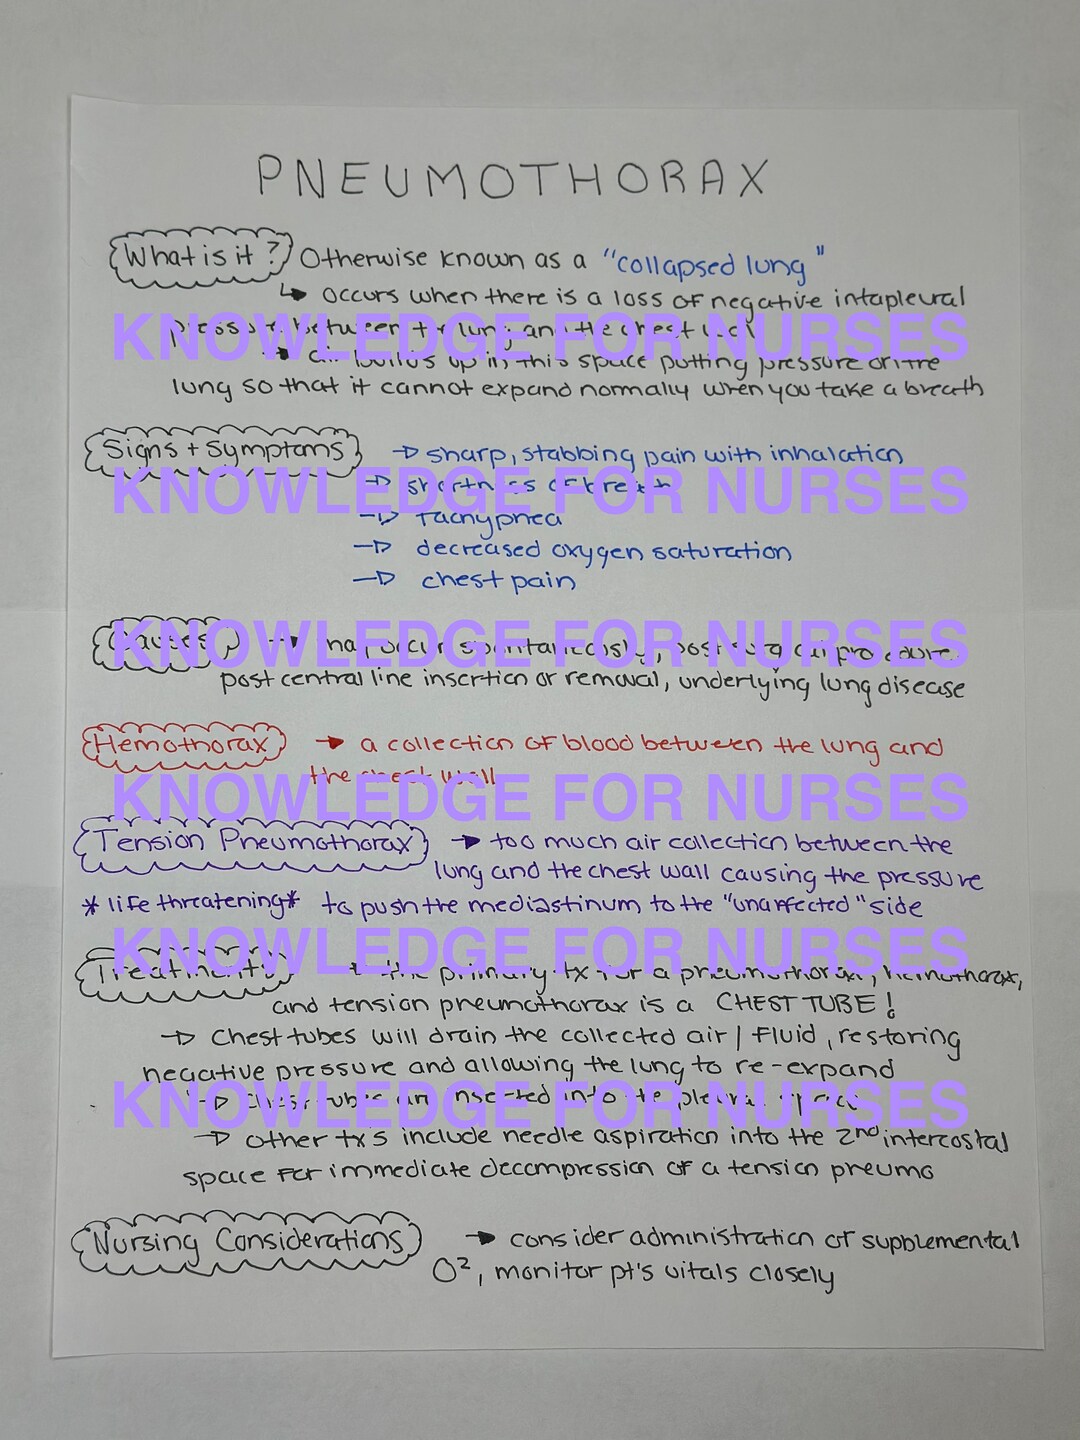 PNEUMOTHORAX
What is it? Otherwise known as a "collapsed lung"
↳ occurs when there is a loss of negative intapleural
pressure between the lung and the chest wall
KNOWLEDGE FOR NURSES
→ air builds up in this space putting pressure on the
lung so that it cannot expand normally when you take a breath
Signs + Symptoms → sharp, stabbing pain with inhalation
→ shortness of breath
KNOWLEDGE FOR NURSES
→ tachypnea
→ decreased oxygen saturation
→ chest pain
Causes → may occur spontaneously, post surgical procedure,
KNOWLEDGE FOR NURSES
post central line insertion or removal, underlying lung disease
Hemothorax → a collection of blood between the lung and
the chest wall
KNOWLEDGE FOR NURSES
Tension Pneumothorax → too much air collection between the
lung and the chest wall causing the pressure
*life threatening* to push the mediastinum to the "unaffected" side
KNOWLEDGE FOR NURSES
Treatments → the primary tx for a pneumothorax, hemothorax,
and tension pneumothorax is a CHEST TUBE!
→ Chest tubes will drain the collected air / fluid, restoring
negative pressure and allowing the lung to re-expand
→ chest tubes are inserted into the pleural space
KNOWLEDGE FOR NURSES
→ other tx's include needle aspiration into the 2nd intercostal
space for immediate decompression of a tension pneumo
Nursing Considerations → consider administration of supplemental
O², monitor pt's vitals closely